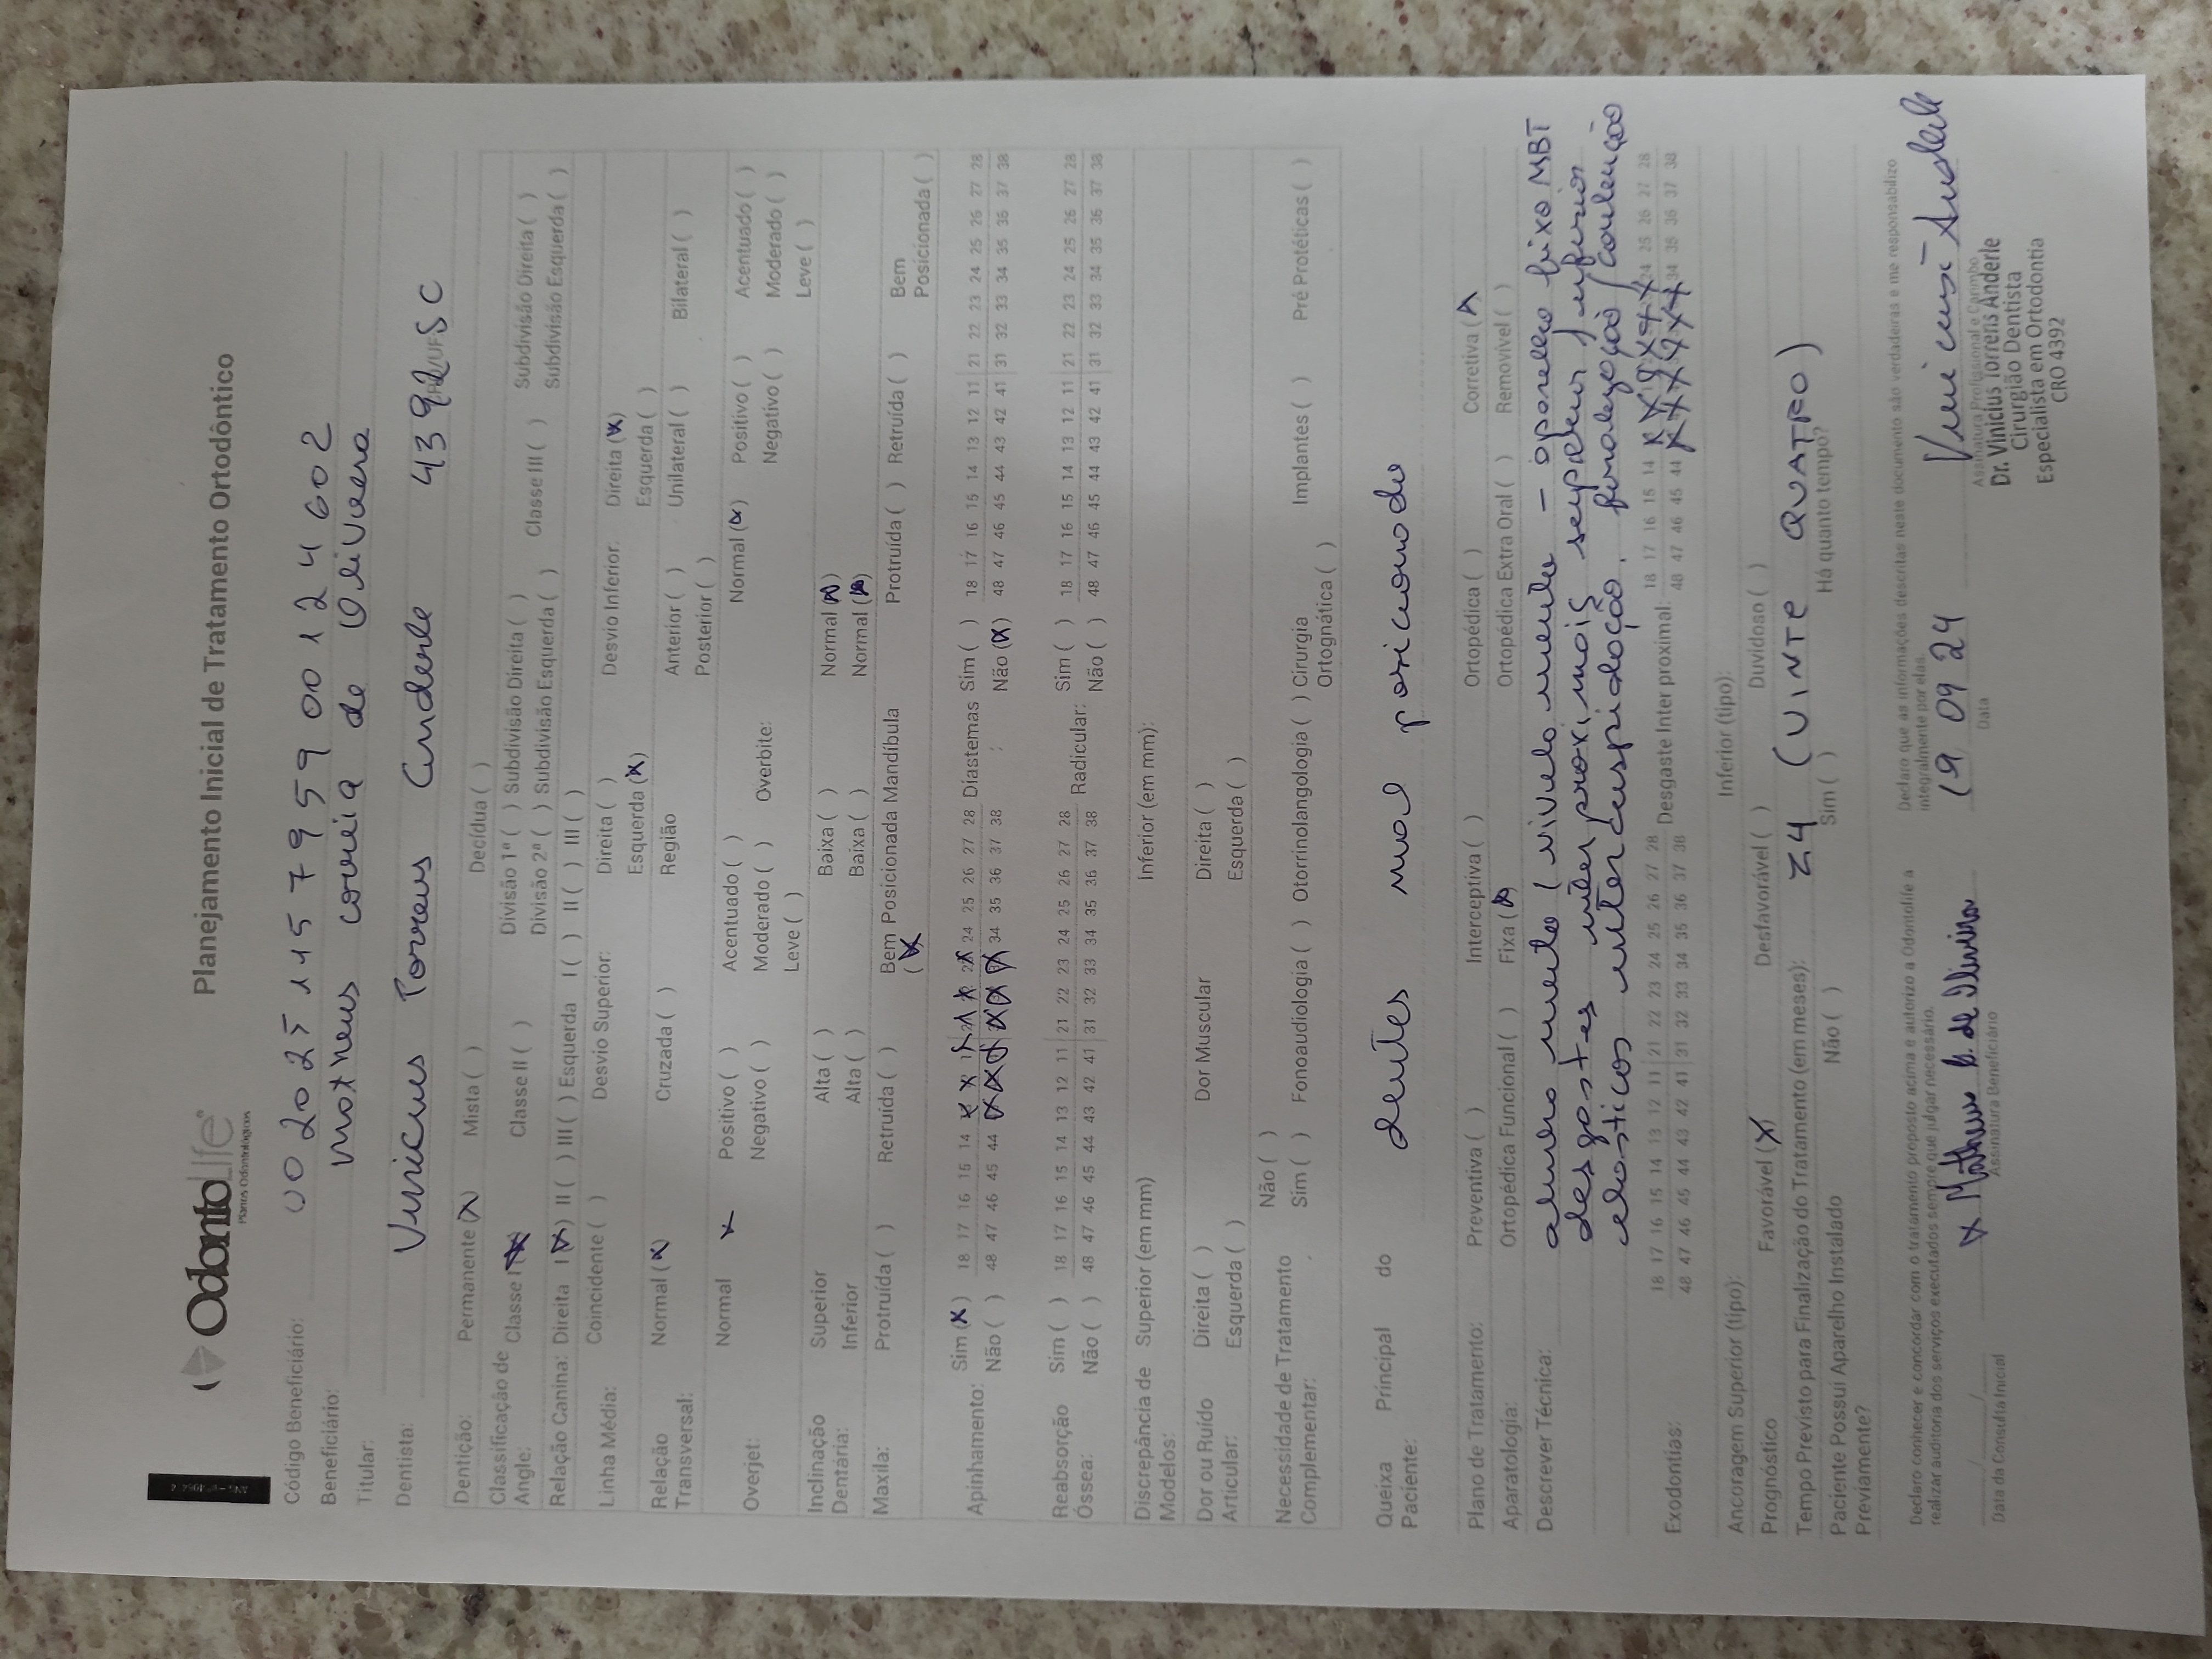 OdontoLife
Planos Odontológicos
Planejamento Inicial de Tratamento Ortodôntico
Código Beneficiário: 00 2025 1457959 00124602
Beneficiário: Matheus Correia de Oliveira
Titular:
Dentista: Vinicius Torrens Anderle 4392 SC
Dentição: Permanente (X) Mista ( ) Decídua ( )
Classificação de Angle: Classe I (X) Classe II ( ) Divisão 1ª ( ) Subdivisão Direita ( ) Classe III ( ) Subdivisão Direita ( )
Divisão 2ª ( ) Subdivisão Esquerda ( ) Subdivisão Esquerda ( )
Relação Canina: Direita I (X) II ( ) III ( ) Esquerda I ( ) II ( ) III ( )
Linha Média: Coincidente ( ) Desvio Superior: Direita ( ) Desvio Inferior: Direita (X)
Esquerda (X) Esquerda ( )
Relação Transversal: Normal (X) Cruzada ( ) Região Anterior ( ) Unilateral ( ) Bilateral ( )
Posterior ( )
Overjet: Normal X Positivo ( ) Acentuado ( ) Overbite: Normal (X) Positivo ( ) Acentuado ( )
Negativo ( ) Moderado ( ) Negativo ( ) Moderado ( )
Leve ( ) Leve ( )
Inclinação Dentária: Superior Alta ( ) Baixa ( ) Normal (X)
Inferior Alta ( ) Baixa ( ) Normal (X)
Maxila: Protruída ( ) Retruída ( ) Bem Posicionada (X) Mandíbula Protruída ( ) Retruída ( ) Bem Posicionada ( )
Apinhamento: Sim (X) 18 17 16 15 14 X X X X X X 24 25 26 27 28 Diastemas Sim ( ) 18 17 16 15 14 13 12 11 21 22 23 24 25 26 27 28
Não ( ) 48 47 46 45 44 X X X X X X 34 35 36 37 38 Não (X) 48 47 46 45 44 43 42 41 31 32 33 34 35 36 37 38
Reabsorção Óssea: Sim ( ) 18 17 16 15 14 13 12 11 21 22 23 24 25 26 27 28 Radicular: Sim ( ) 18 17 16 15 14 13 12 11 21 22 23 24 25 26 27 28
Não ( ) 48 47 46 45 44 43 42 41 31 32 33 34 35 36 37 38 Não ( ) 48 47 46 45 44 43 42 41 31 32 33 34 35 36 37 38
Discrepância de Modelos: Superior (em mm) Inferior (em mm):
Dor ou Ruído Articular: Direita ( ) Dor Muscular Direita ( )
Esquerda ( ) Esquerda ( )
Necessidade de Tratamento Complementar: Não ( )
Sim ( ) Fonoaudiologia ( ) Otorrinolangologia ( ) Cirurgia Ortognática ( ) Implantes ( ) Pré Protéticas ( )
Queixa Principal do Paciente: dentes mal posicionado
Plano de Tratamento: Preventiva ( ) Interceptiva ( ) Ortopédica ( ) Corretiva (X)
Aparatologia: Ortopédica Funcional ( ) Fixa (X) Ortopédica Extra Oral ( ) Removível ( )
Descrever Técnica: alinhamento / nivelamento - aparelho fixo MBT
desgastes interproximais superior / inferior
elásticos intercuspidação. finalização / contenção
Exodontias: 18 17 16 15 14 13 12 11 21 22 23 24 25 26 27 28 Desgaste Inter proximal: 18 17 16 15 14 X X X X X X 24 25 26 27 28
48 47 46 45 44 43 42 41 31 32 33 34 35 36 37 38 48 47 46 45 44 X X X X X X 34 35 36 37 38
Ancoragem Superior (tipo): Inferior (tipo):
Prognóstico Favorável (X) Desfavorável ( ) Duvidoso ( )
Tempo Previsto para Finalização do Tratamento (em meses): 24 (VINTE QUATRO)
Paciente Possui Aparelho Instalado Previamente? Não ( ) Sim ( ) Há quanto tempo?
Declaro conhecer e concordar com o tratamento proposto acima e autorizo a Odontolife a
realizar auditoria dos serviços executados sempre que julgar necessário.
Declaro que as informações descritas neste documento são verdadeiras e me responsabilizo
integralmente por elas.
X Matheus C. de Oliveira
19 09 24
Data da Consulta Inicial
Assinatura Beneficiário
Data
Assinatura Profissional e Carimbo
Dr. Vinicius Torrens Anderle
Cirurgião Dentista
Especialista em Ortodontia
CRO 4392